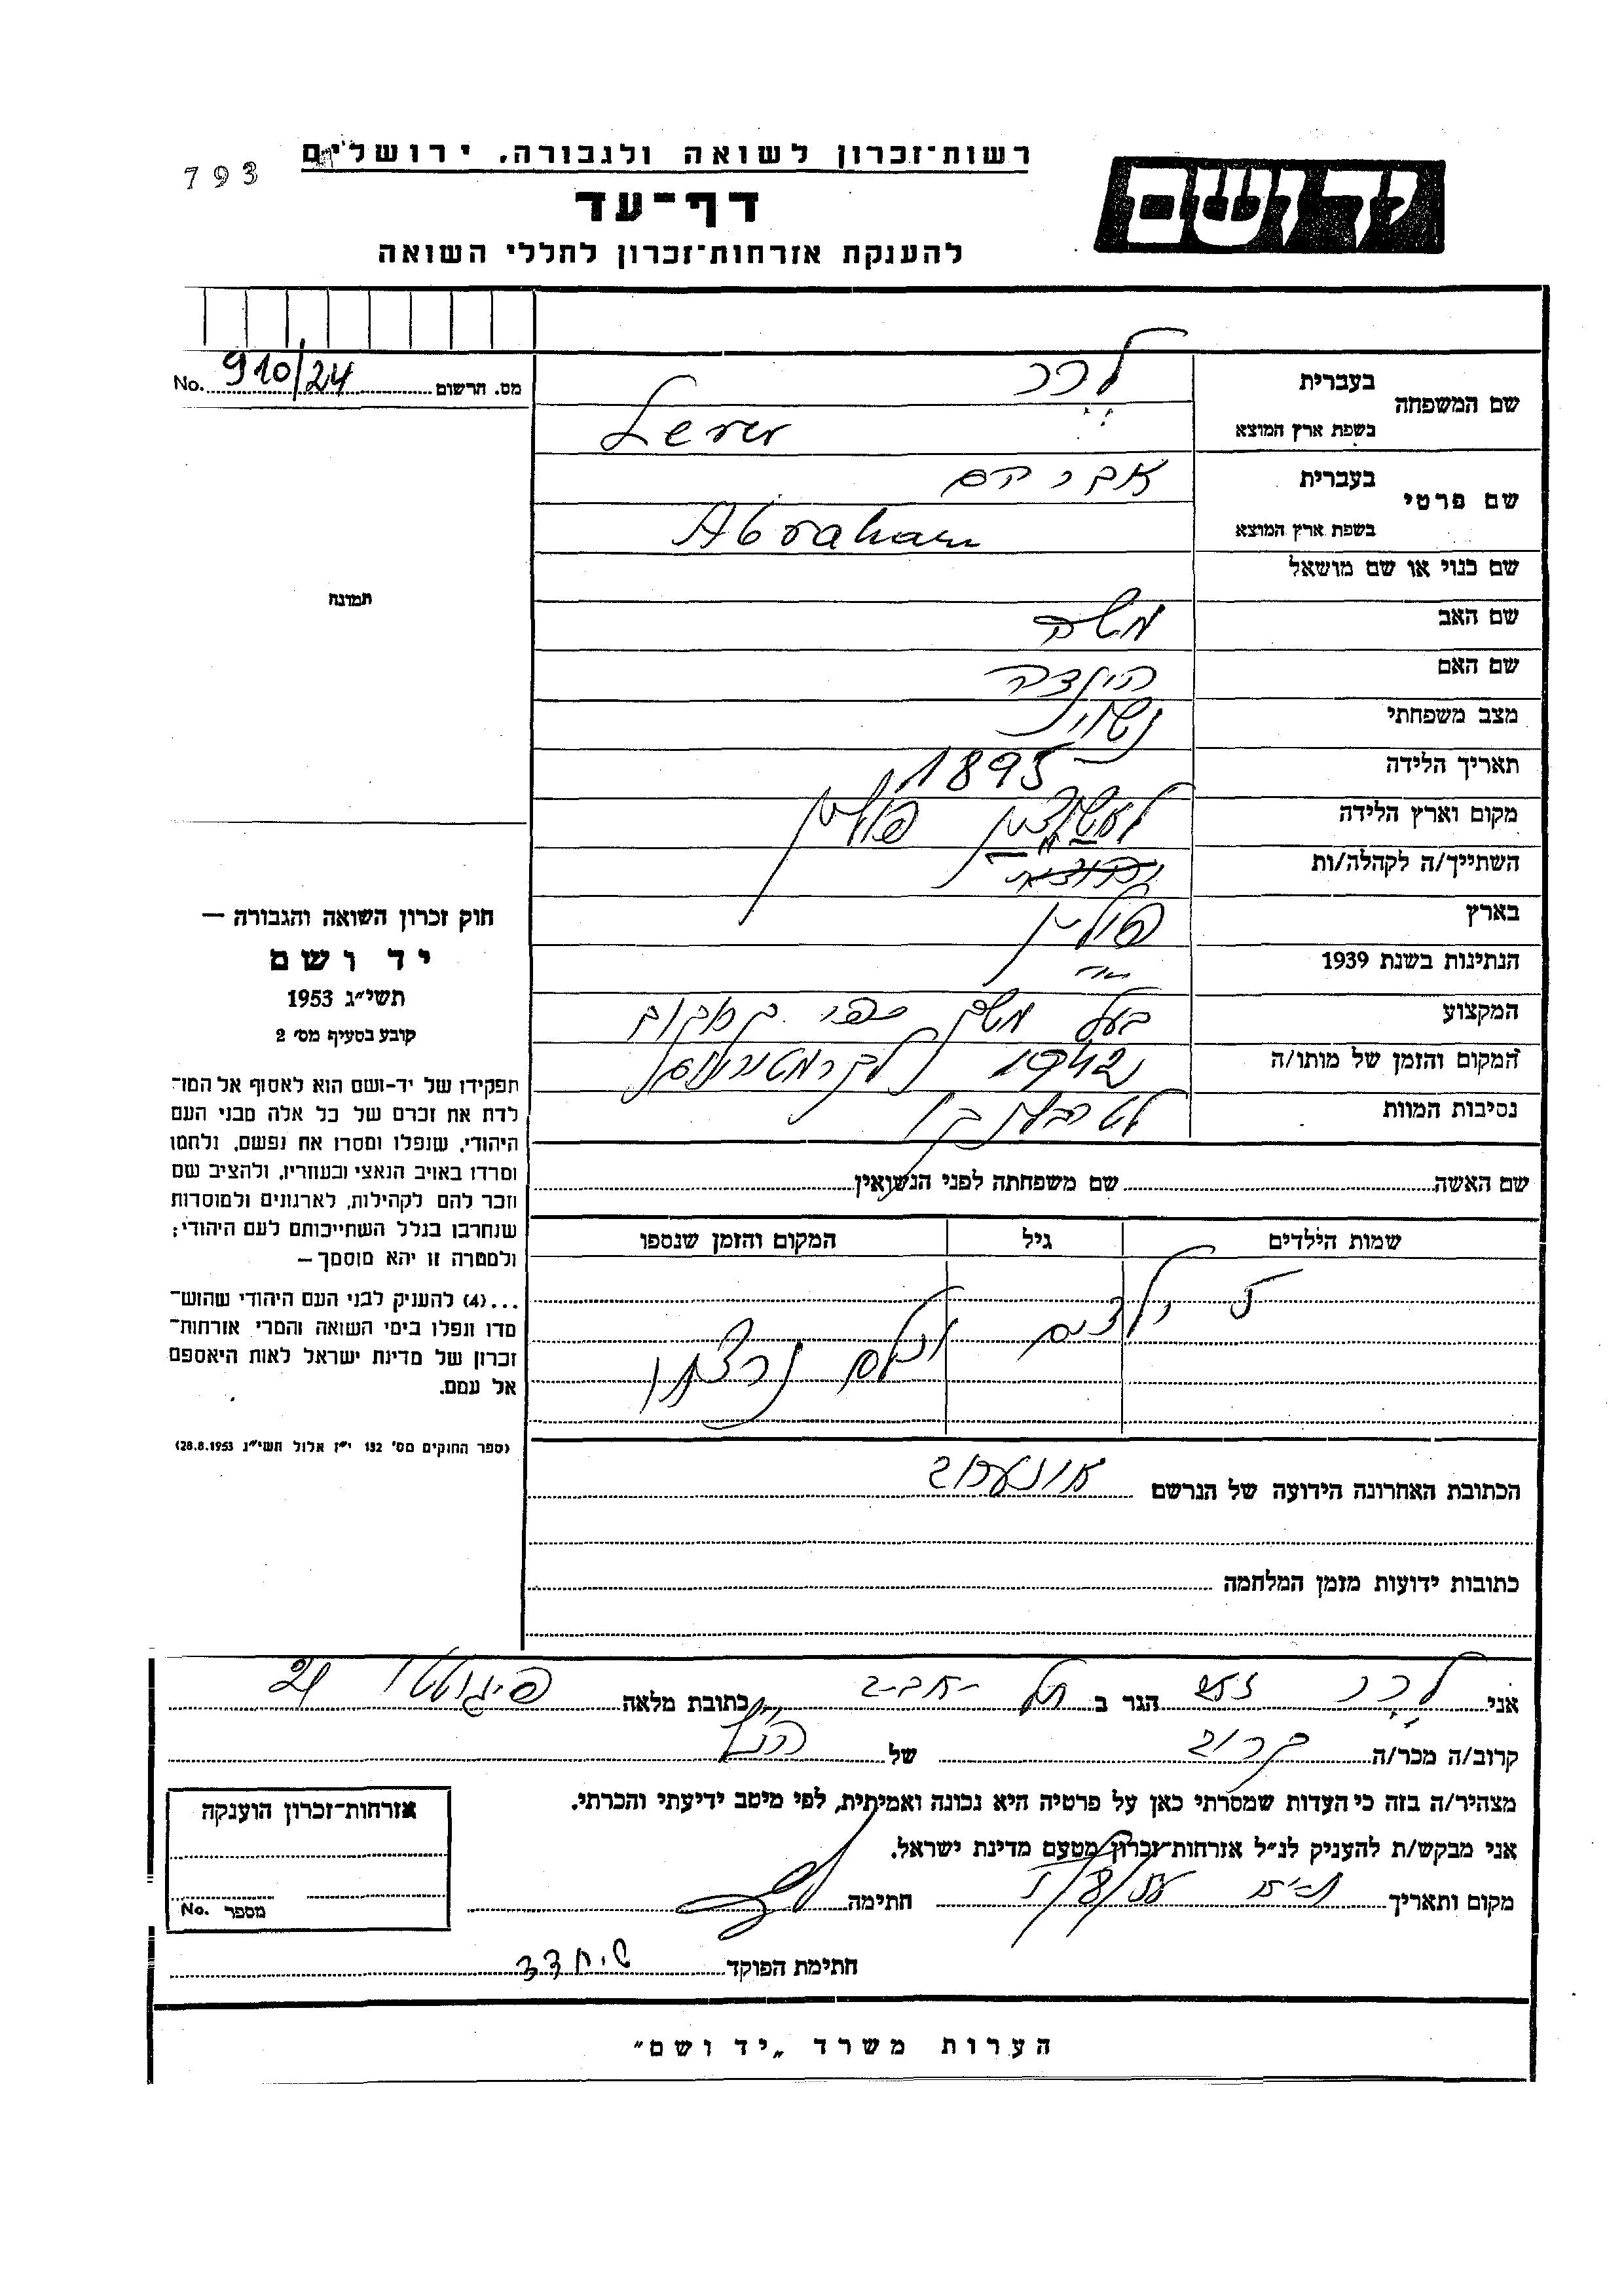 793
רשות־זכרון לשואה ולגבורה, ירושלים
יד ושם
דף־עד
להענקת אזרחות־זכרון לחללי השואה
מס. הרשום No. 910/24
שם המשפחה
בעברית לרר
בשפת ארץ המוצא Lerer
שם פרטי
בעברית אברהם
בשפת ארץ המוצא Abraham
שם כנוי או שם מושאל
תמונה
שם האב משה
שם האם הינדה
מצב משפחתי נשוי
תאריך הלידה 1895
מקום וארץ הלידה פולין
השתייך/ה לקהלה/ות
בארץ פולין
הנתינות בשנת 1939
המקצוע בעל משק
המקום והזמן של מותו/ה 1942
נסיבות המוות
שם האשה שם משפחתה לפני הנשואין
שמות הילדים גיל המקום והזמן שנספו
5 ילדים וכולם נרצחו
הכתובת האחרונה הידועה של הנרשם
כתובות ידועות מזמן המלחמה
חוק זכרון השואה והגבורה —
יד ושם
תשי״ג 1953
קובע בסעיף מס׳ 2
תפקידו של יד-ושם הוא לאסוף אל המו־
לדת את זכרם של כל אלה מבני העם
היהודי, שנפלו ומסרו את נפשם, נלחמו
ומרדו באויב הנאצי ובעוזריו, ולהציב שם
וזכר להם לקהילות, לארגונים ולמוסדות
שנחרבו בגלל השתייכותם לעם היהודי;
ולמטרה זו יהא מוסמך —
...(4) להעניק לבני העם היהודי שהוש־
מדו ונפלו בימי השואה והמרי אזרחות־
זכרון של מדינת ישראל לאות היאספם
אל עמם.
(ספר החוקים מס׳ 132 י״ז אלול תשי״ג 28.8.1953)
אני לרר הגר ב תל-אביב כתובת מלאה 21
קרוב/ה מכר/ה קרוב של הנ״ל
מצהיר/ה בזה כי העדות שמסרתי כאן על פרטיה היא נכונה ואמיתית, לפי מיטב ידיעתי והכרתי.
אני מבקש/ת להעניק לנ״ל אזרחות־זכרון מטעם מדינת ישראל.
מקום ותאריך חתימה
חתימת הפוקד
אזרחות־זכרון הוענקה
מספר No.
הערות משרד „יד ושם״